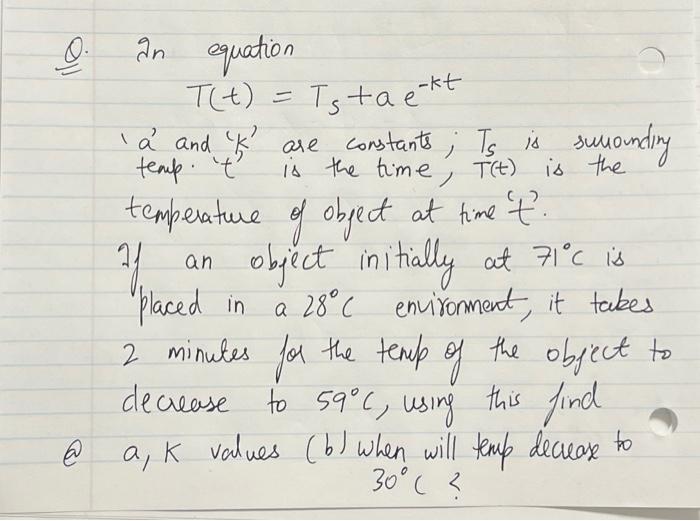 Q. In equation
T(t) = Ts + a e^-kt
'a' and 'k' are constants; Ts is surrounding
temp. 't' is the time, T(t) is the
temperature of object at time 't'.
If an object initially at 71°C is
placed in a 28°C environment, it takes
2 minutes for the temp of the object to
decrease to 59°C, using this find
(a) a, K values (b) when will temp decrease to
30°C ?